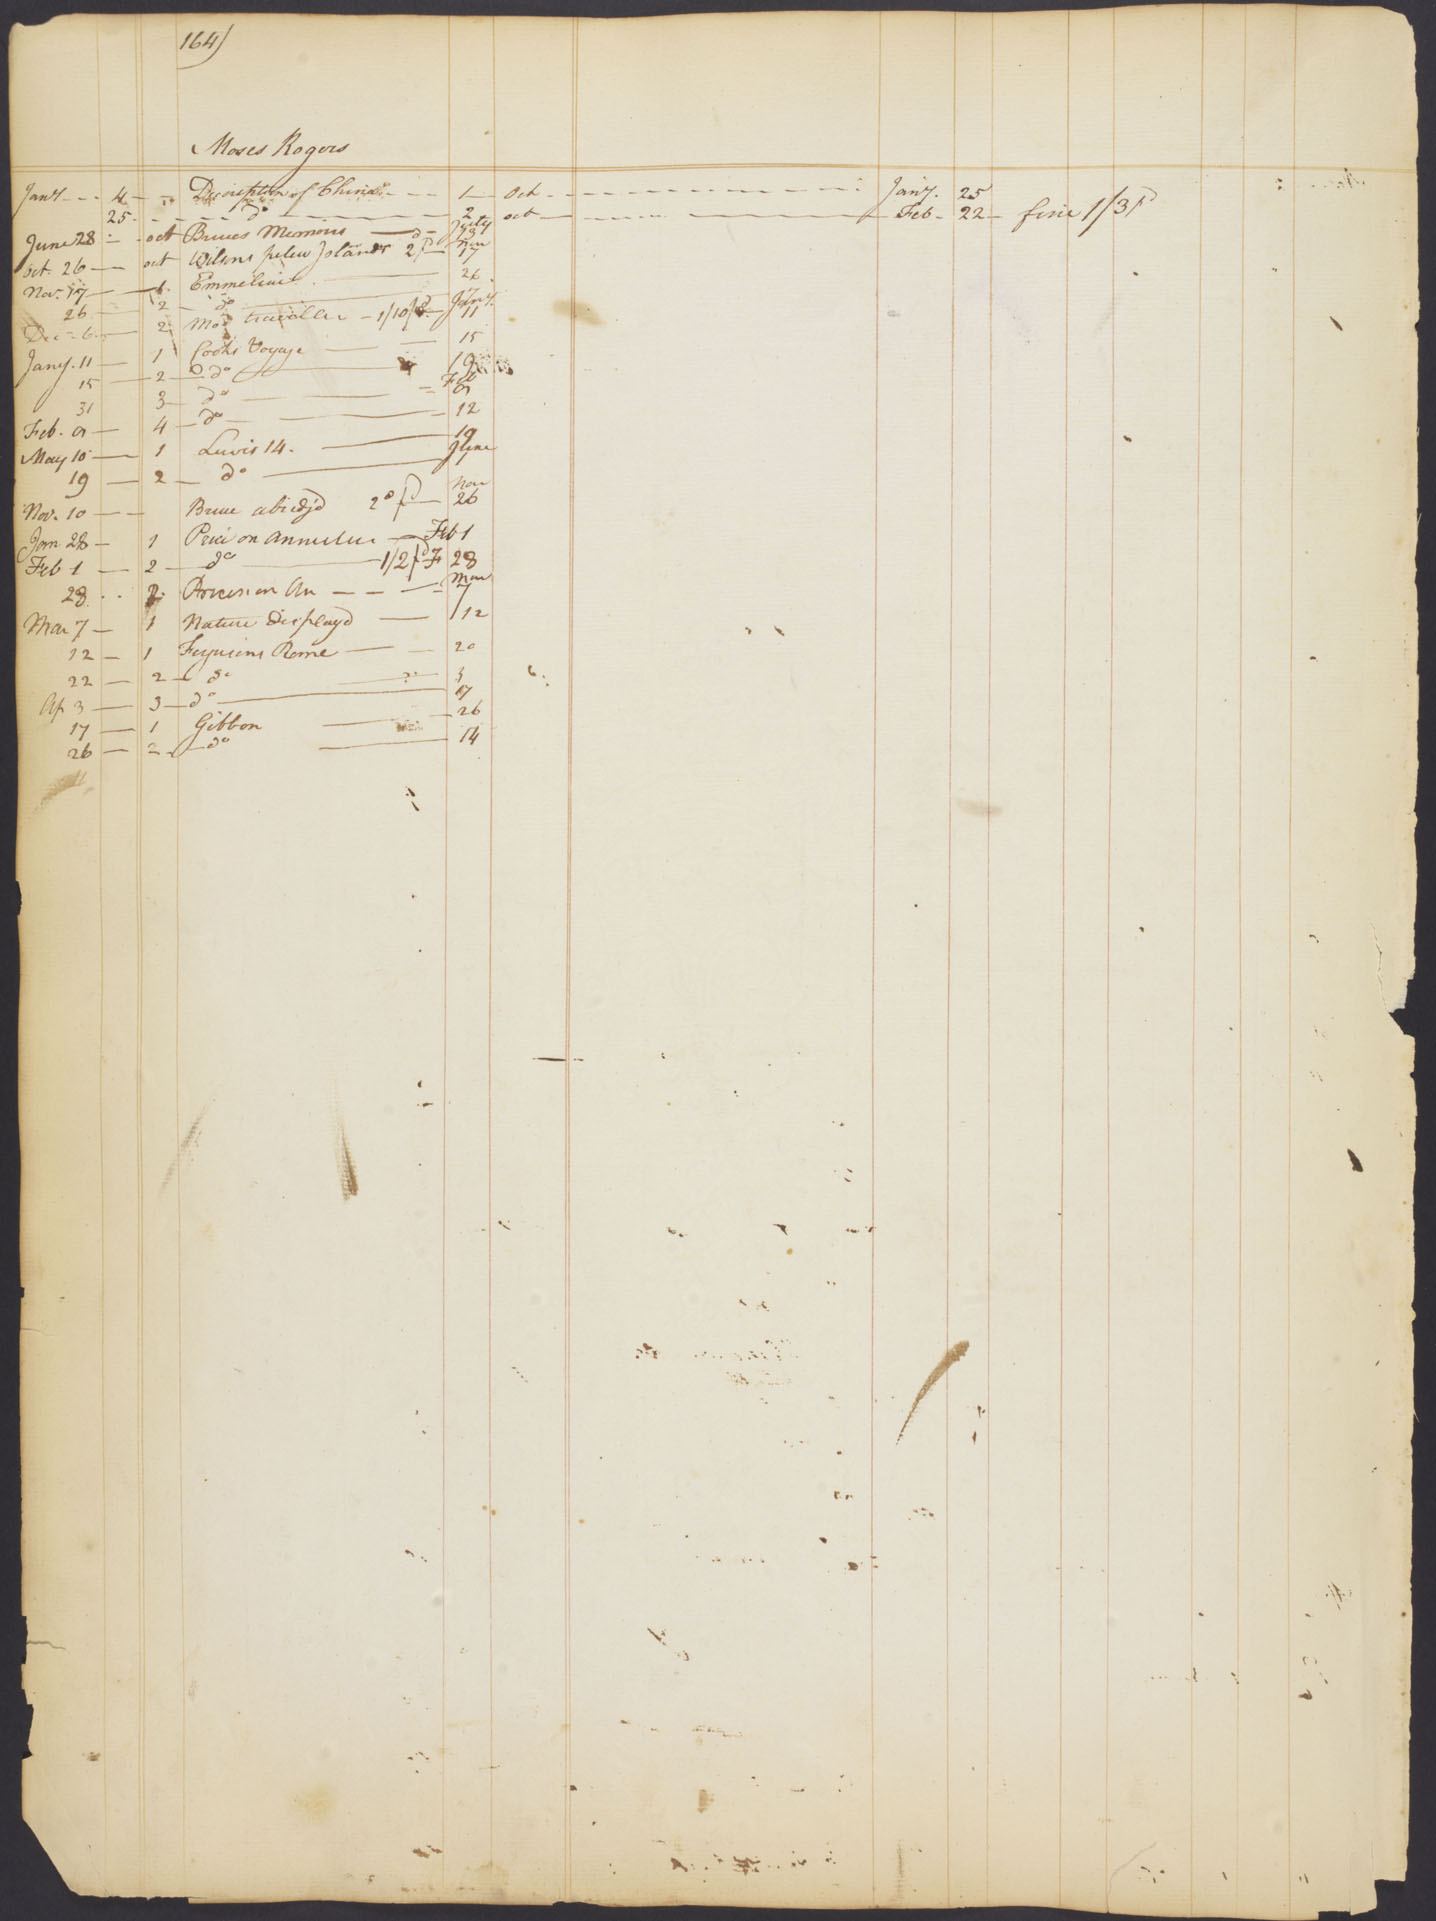 164)
Moses Rogers
Jany 4 Description of China 1 Oct Jany. 25
25 do 2 oct Feb 22 fine 1/3 pd
June 28 oct Bruces Memoirs July 23
Oct. 26 oct Wilsons pelew Islands 2/ pd Nov 17
Nov. 17 1 Emmeline 26
26 2 do
Dec 6 2 Mod traveller 1/10 pd Jany. 11
Jany. 11 1 Cooks Voyage 15
15 2 do 19
31 3 do Feb 9
Feb. 9 4 do 12
May 10 1 Lewis 14. 19
19 2 do June
Nov. 10 Bruce abridjd 2d pd Nov 26
Jan 28 1 Price on Annuities Feb 1
Feb 1 2 do 1/2 pd F 28
28 2 Price on An Mar 7
Mar 7 1 Nature Displayd 12
12 1 Fergusons Rome 20
22 2 do 3
Ap 3 3 do 17
17 1 Gibbon 26
26 2 do 14